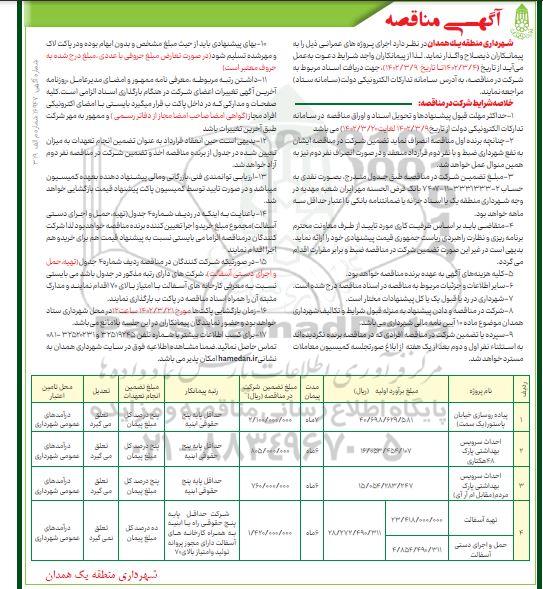 آگهی مناقصه
شهرداری منطقه یک همدان در نظر دارد اجرای پروژه های عمرانی ذیل را به
پیمانکاران ذیصلاح واگذار نماید. لذا از پیمانکاران واجد شرایط دعوت به عمل
می آید از تاریخ (۱۴۰۲/۳/۴) تا تاریخ (۱۴۰۲/۳/۹) جهت دریافت اسناد مربوط به
شرکت در مناقصه، به آدرس سامانه تدارکات الکترونیکی دولت (سامانه ستاد)
مراجعه نمایند.
خلاصه شرایط شرکت در مناقصه:
۱-حداکثر مهلت قبول پیشنهادها و تحویل اسناد و اوراق مناقصه در سامانه
تدارکات الکترونیکی دولت از تاریخ ۱۴۰۲/۳/۹ لغایت ۱۴۰۲/۳/۲۰ می باشد
۲-چنانچه برنده اول مناقصه انصراف نماید تضمین شرکت در مناقصه ایشان
به نفع شهرداری ضبط و با نفر دوم قرارداد منعقد و در صورت انصراف نفر دوم نیز به
همین منوال عمل خواهد شد.
۳-مبلغ تضمین شرکت در مناقصه طبق جدول مندرج، بصورت نقدی به
وجه شهرداری منطقه یک یا اسناد خزانه یا ضمانتنامه بانکی با اعتبار حداقل سه
ماهه خواهد بود.
۴-متقاضی باید بر اساس ظرفیت کاری مورد تایید از طرف معاونت محترم
برنامه ریزی و نظارت راهبردی ریاست جمهوری قیمت پیشنهادی خود را ارائه نماید.
بدیهی است در غیر این صورت تضمین شرکت در مناقصه ضبط و برابر مقررات اقدام
می گردد.
۵-کلیه هزینه های آگهی به عهده برنده مناقصه خواهد بود.
۶-سایر اطلاعات و جزئیات مربوط به مناقصه در اسناد مناقصه درج شده است.
۷-شهرداری در رد یا قبول یک یا کل پیشنهادات مختار است.
۸-شرکت در مناقصه و دادن پیشنهاد به منزله قبول شرایط و تکالیف شهرداری
همدان موضوع ماده ۱۰ آیین نامه مالی شهرداری می باشد.
۹-سپرده یا تضمین شرکت در مناقصه افرادی که در مناقصه برنده نگردیده اند
به استثناء نفر اول و دوم بعد از یک هفته از ابلاغ صورتجلسه کمیسیون معاملات
مسترد خواهد شد.
۱۰-بهای پیشنهادی باید از حیث مبلغ مشخص و بدون ابهام بوده و در پاکت لاک
و مهر شده تسلیم شود (در صورت تعارض مبلغ حروفی با عددی، مبلغ درج شده به
حروف معتبر است)
۱۱-داشتن رتبه مربوطه، معرفی نامه ممهور و امضای مدیرعامل، روزنامه
آخرین آگهی تغییرات اعضای شرکت در هنگام بارگذاری اسناد الزامی است. کلیه
صفحات و مدارکی که در داخل پاکت ب قرار میگیرد بایستی با امضای الکترونیکی
افراد مجاز (گواهی امضا صاحب امضا مجاز از دفاتر رسمی) و ممهور به مهر شرکت
طبق آخرین تغییرات باشد
۱۲-بدیهی است حین انعقاد قرارداد به عنوان تضمین انجام تعهدات به میزان
تعیین شده در جدول از برنده مناقصه اخذ و تضمین شرکت در مناقصه نفر دوم
آزاد خواهد شد.
۱۳-ارزیابی توانمندی فنی بازرگانی و مالی پیشنهاد دهنده بعهده کمیسیون
میباشد و در صورت تایید توسط کمیسیون پاکت پیشنهاد قیمت بازگشایی خواهد
شد.
۱۴-با عنایت به اینکه در ردیف شماره ۴ جدول (تهیه، حمل و اجرای دستی
آسفالت) مجموع مبلغ خرید و اجرا تعیین کننده برنده مناقصه خواهد بود لذا شرکت
کنندگان در مناقصه الزاما می بایستی نسبت به پیشنهاد قیمت هم برای خرید و هم
اجرا اقدام نمایند.
۱۵-در صورتیکه شرکت کنندگان در مناقصه ردیف شماره ۴ جدول (تهیه، حمل
و اجرای دستی آسفالت)، شرکت های دارای رتبه مذکور در جدول باشد می بایستی
نسبت به معرفی کارخانه های آسفالت با امتیاز بالای ۷۰ اقدام نمایند و مدارک
مثبته آن را همراه اسناد مناقصه در پاکت ب بارگذاری نمایند.
۱۶-زمان بازگشایی پاکت‌ها مورخ ۱۴۰۲/۳/۲۱ ساعت ۱۲ در محل شهرداری ستاد
خواهد بود و حضور نمایندگان پیمانکاران در این جلسه بلامانع می باشد.
تماس حاصل نمائید. ضمنا مشاهده اطلاعیه فوق در سایت شهرداری همدان به
نشانی hamedan.ir امکان پذیر می باشد.
ردیف | نام پروژه | مبلغ برآورد اولیه (ریال) | مدت پیمان | مبلغ تضمین شرکت در مناقصه (ریال) | رتبه پیمانکار | مبلغ تضمین انجام تعهدات | تعدیل | محل تامین اعتبار
۱ | پیاده روسازی خیابان پاستور (یک سمت) | ۴۰/۶۹۸/۶۲۹/۵۸۱ | ۷ماه | ۲/۱۰۰/۰۰۰/۰۰۰ | حداقل پایه پنج حقوقی ابنیه | پنج درصد کل مبلغ پیمان | تعلق می گیرد | درآمدهای عمومی شهرداری
۲ | احداث سرویس بهداشتی پارک ۴۸هکتاری | ۱۶/۰۵۳/۴۵۴/۱۰۷ | ۶ماه | ۸۰۵/۰۰۰/۰۰۰ | حداقل پایه پنج حقوقی ابنیه | پنج درصد کل مبلغ پیمان | تعلق می گیرد | درآمدهای عمومی شهرداری
۳ | احداث سرویس بهداشتی پارک مردم (مقابل ام آر آی) | ۱۵/۰۵۴/۲۸۳/۲۴۷ | ۶ماه | ۷۶۰/۰۰۰/۰۰۰ | حداقل پایه پنج حقوقی ابنیه | پنج درصد کل مبلغ پیمان | تعلق می گیرد | درآمدهای عمومی شهرداری
۴ | تهیه آسفالت | ۲۳/۴۱۸/۰۰۰/۰۰۰ | حمل و اجرای دستی آسفالت | ۴/۸۵۴/۴۹۰/۳۱۱ | ۲۸/۲۷۲/۴۹۰/۳۱۱ | ۶ماه | ۱/۴۲۰/۰۰۰/۰۰۰ | شرکت حداقل پایه پنج حقوقی راه یا ابنیه به همراه کارخانه های آسفالت دارای مجوز پروانه تولید و امتیاز بالای ۷۰ | ده درصد کل مبلغ پیمان | تعلق نمی گیرد | درآمدهای عمومی شهرداری
شهرداری منطقه یک همدان